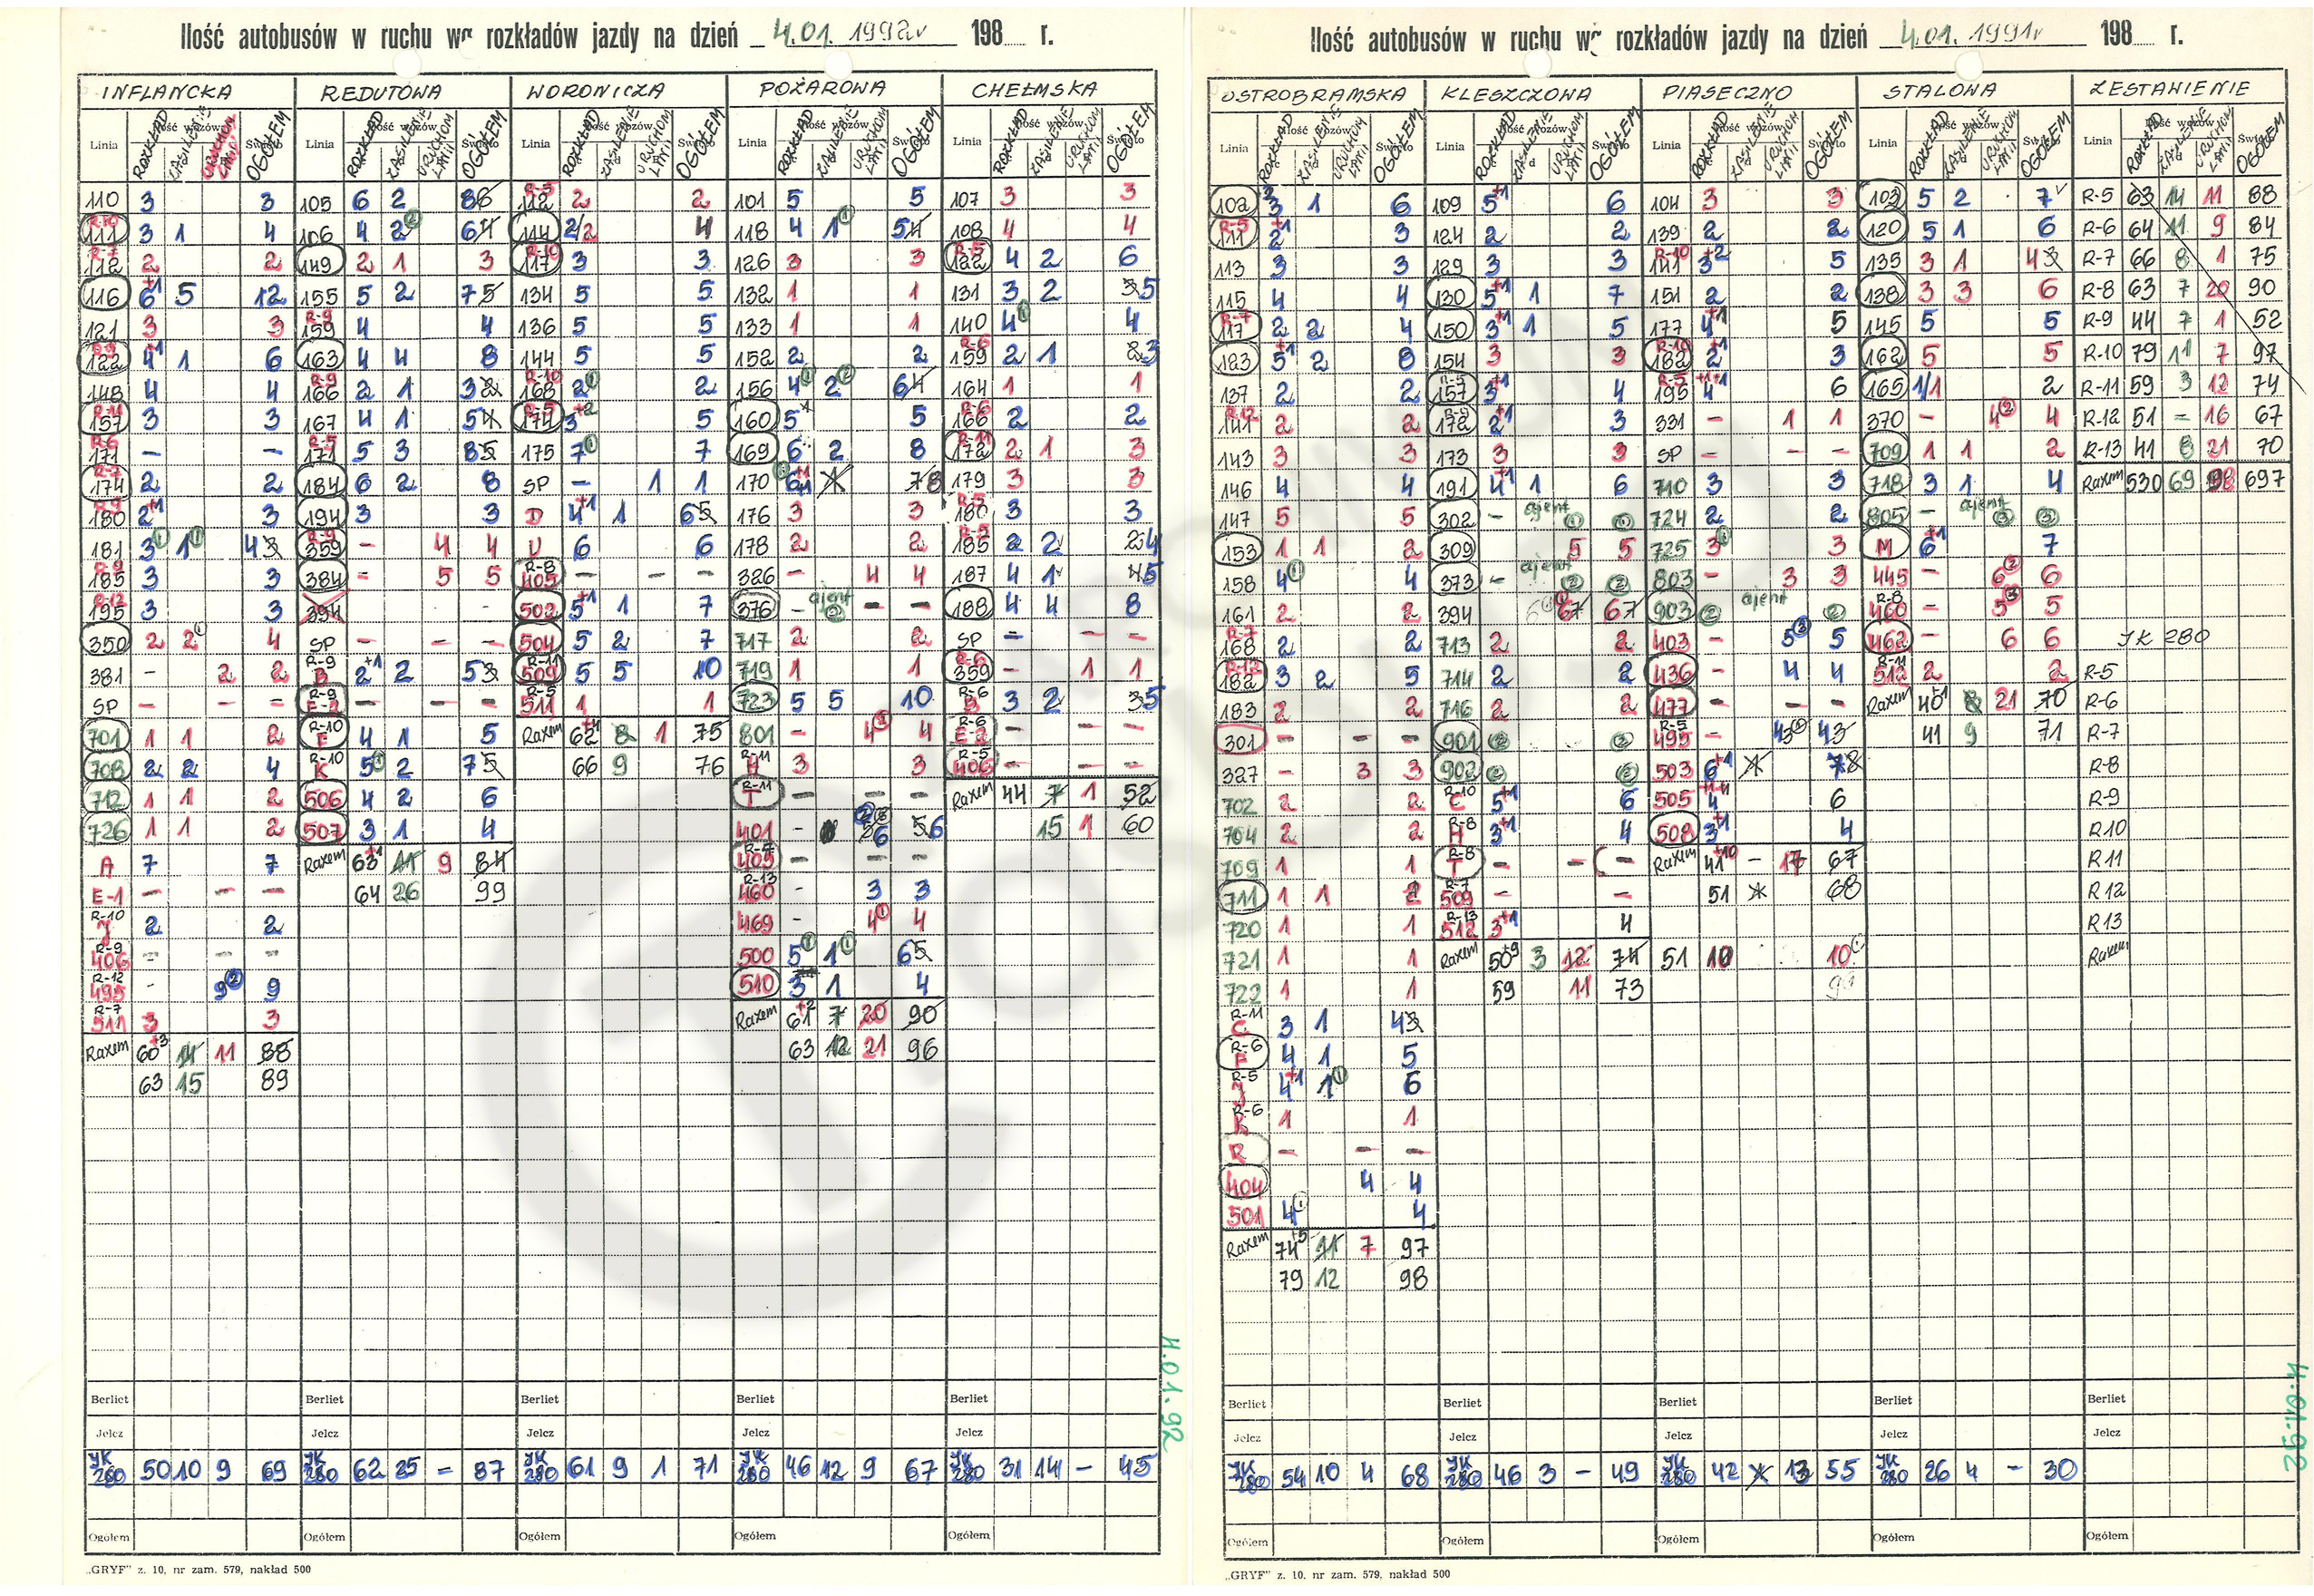 Ilość autobusów w ruchu wg rozkładów jazdy na dzień 4.01.1992r 198 r.
INFLANCKA REDUTOWA WORONICZA POŻAROWA CHEŁMSKA
Linia ROZKŁAD ZASILENIE OGÓŁEM Linia ROZKŁAD ZASILENIE OGÓŁEM Linia ROZKŁAD ZASILENIE OGÓŁEM Linia ROZKŁAD ZASILENIE OGÓŁEM Linia ROZKŁAD ZASILENIE OGÓŁEM
110 3 3 105 6 2 R-5 112 2 2 101 5 5 107 3 3
R-10 111 3 1 4 106 4 2 114 2/2 4 118 4 1 108 4 4
R-7 112 2 2 149 2 1 3 R-10 117 3 3 126 3 3 R-5 122 4 2 6
116 6+1 5 12 155 5 2 134 5 5 132 1 1 131 3 2 5
121 3 3 R-9 159 4 4 136 5 5 133 1 1 140 4 4
R-9 122 4+1 1 6 163 4 4 8 144 5 5 152 2 2 R-6 159 2 1 3
148 4 4 R-9 166 2 1 R-10 168 2 2 156 4 2 164 1 1
R-11 157 3 3 167 4 1 R-5 174 3+2 5 160 5 5 R-6 166 2 2
R-6 171 - - R-5 171 5 3 175 7 7 169 6 2 8 R-11 172 2 1 3
R-7 174 2 2 184 6 2 8 SP - 1 1 170 179 3 3
R-9 180 2+1 3 194 3 3 D 4+1 1 176 3 3 R-5 180 3 3
181 3 1 R-9 359 - 4 4 U 6 6 178 2 2 R-9 185 2 2 4
R-9 185 3 3 384 - 5 5 R-8 405 - - - 326 - 4 4 187 4 1 5
R-12 195 3 3 394 502 5+1 1 7 376 - ajent 2 - - 188 4 4 8
350 2 2 4 SP - - - 504 5 2 7 717 2 2 SP - - -
381 - 2 2 R-9 B 2+1 2 R-11 509 5 5 10 719 1 1 R-6 359 - 1 1
SP - - - R-9 E-2 - - - R-5 511 1 1 723 5 5 10 R-6 B 3 2 5
701 1 1 2 R-10 F 4 1 5 Razem 62+4 8 1 75 801 - 4 4 R-6 E-2 - - -
708 2 2 4 R-10 K 5 2 66 9 76 R-11 H 3 3 R-5 406 - - -
712 1 1 2 506 4 2 6 R-11 T - - - Razem 44 7 1 52
726 1 1 2 507 3 1 4 401 - 6 15 1 60
A 7 7 Razem 63+1 11 9 84 R-7 405 - - -
E-1 - - - 64 26 99 R-13 460 - 3 3
R-10 J 2 2 469 - 4 4
R-9 406 - - - 500 5 1
R-12 495 - 9 9 510 3 1 4
R-7 511 3 3 Razem 61+2 7 20 90
Razem 60+3 14 11 88 63 12 21 96
63 15 89
Berliet Berliet Berliet Berliet Berliet
Jelcz Jelcz Jelcz Jelcz Jelcz
JK 280 50 10 9 69 JK 280 62 25 = 87 JK 280 61 9 1 71 JK 280 46 12 9 67 JK 280 31 14 - 45
Ogółem Ogółem Ogółem Ogółem Ogółem
„GRYF" z. 10. nr zam. 579, nakład 500
4.01.92
Ilość autobusów w ruchu wg rozkładów jazdy na dzień 4.01.1991r 198 r.
OSTROBRAMSKA KLESZCZOWA PIASECZNO STALOWA ZESTAWIENIE
Linia ROZKŁAD ZASILENIE OGÓŁEM Linia ROZKŁAD ZASILENIE OGÓŁEM Linia ROZKŁAD ZASILENIE OGÓŁEM Linia ROZKŁAD ZASILENIE OGÓŁEM Linia ROZKŁAD ZASILENIE OGÓŁEM
102 1 6 109 5+1 6 104 3 3 103 5 2 7 R-5 63 14 11 88
R-5 111 2+1 3 124 2 2 139 2 2 120 5 1 6 R-6 64 11 9 84
113 3 3 129 3 3 R-10 141 3+2 5 135 3 1 R-7 66 8 1 75
115 4 4 130 5+1 1 7 151 2 2 138 3 3 6 R-8 63 7 20 90
R-7 117 2 2 4 150 3+1 1 5 177 4+1 5 145 5 5 R-9 44 7 1 52
123 5+1 2 8 154 3 3 R-10 182 2+1 3 162 5 5 R-10 79 11 7 97
137 2 2 R-5 157 3+1 4 R-5 195 4+1+1 6 165 1/1 2 R-11 59 3 12 74
R-12 141 2 2 R-9 172 2+1 3 331 - 1 1 370 - 4 4 R-12 51 = 16 67
143 3 3 173 3 3 SP - - - 709 1 1 2 R-13 41 8 21 70
146 4 4 191 4+1 1 6 710 3 3 718 3 1 4 Razem 530 69 98 697
147 5 5 302 - ajent 724 2 2 805 - ajent 3 3
153 1 1 2 309 5 5 725 3 3 M 6+1 7
158 4 4 373 - ajent 2 2 803 - 3 3 445 - 6 6
161 2 2 394 903 2 ajent 2 R-8 460 - 5 5
R-7 168 2 2 713 2 2 403 - 5 5 462 - 6 6 JK 280
R-12 182 3 2 5 714 2 2 436 - 4 4 R-11 512 2 2 R-5
183 2 2 716 2 2 477 - - - Razem 40+1 8 21 70 R-6
301 - - - 901 2 2 R-5 495 41 9 71 R-7
327 - 3 3 902 2 2 503 6+1 R-8
702 2 2 R-10 C 5+1 6 505 6 R-9
704 2 2 R-8 H 3+1 4 508 3+1 4 R10
709 1 1 R-8 T - - - Razem 41+10 - 67 R11
711 1 1 2 R-7 509 - - 51 68 R12
720 1 1 R-13 512 3+1 4 R13
721 1 1 Razem 50+9 3 12 74 51 10 10 Razem
722 1 1 59 11 73
R-11 C 3 1
R-6 F 4 1 5
R-5 J 4+1 1 6
R-6 K 1 1
R - - -
404 4 4
501 4 4
Razem 74+5 11 7 97
79 12 98
Berliet Berliet Berliet Berliet Berliet
Jelcz Jelcz Jelcz Jelcz Jelcz
JK 280 54 10 4 68 JK 280 46 3 - 49 JK 280 42 13 55 JK 280 26 4 - 30
Ogółem Ogółem Ogółem Ogółem Ogółem
„GRYF" z. 10. nr zam. 579, nakład 500
4.01.92